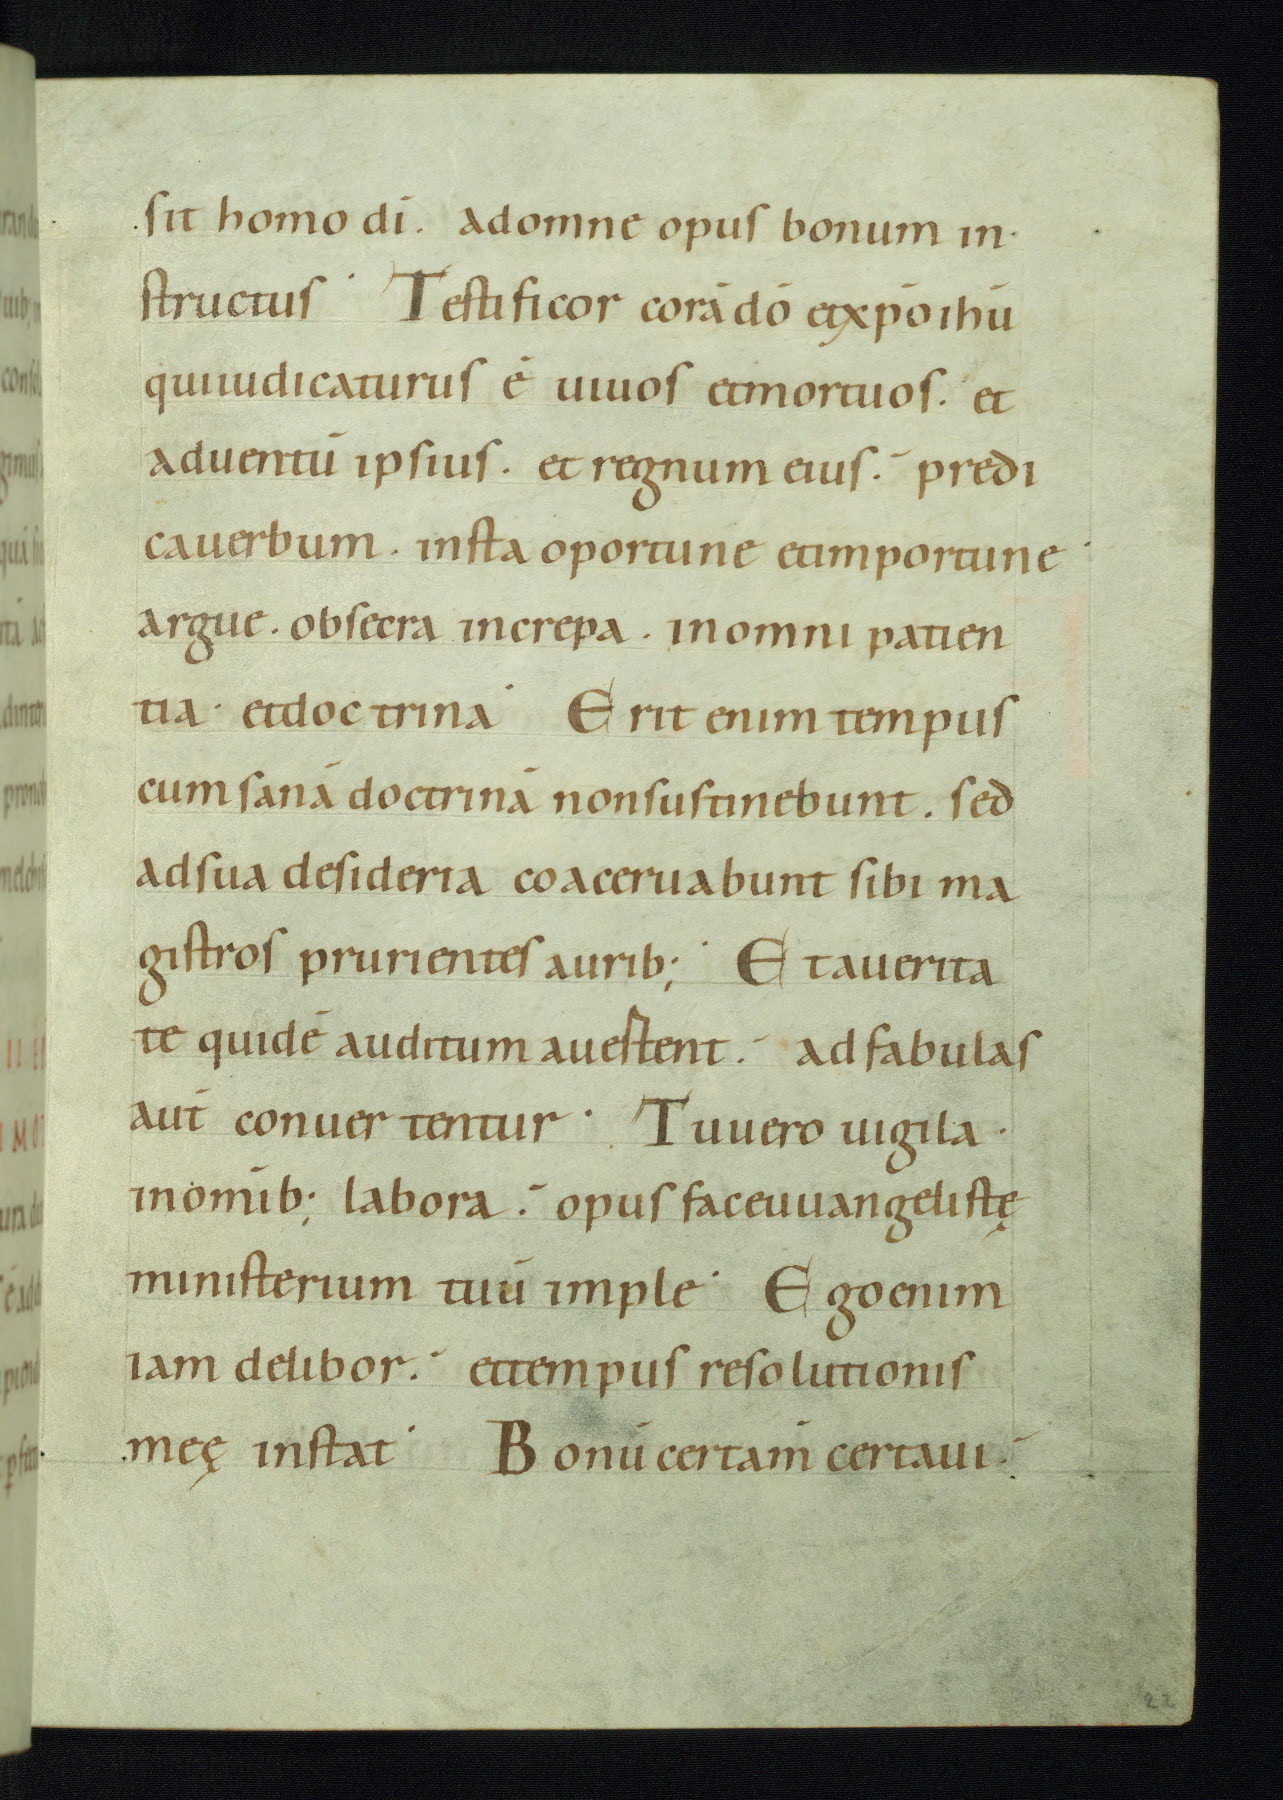 sit homo dī. adomne opus bonum in
structus. Testificor corā dō etxpō ihū
quiiudicaturus ē uiuos etmortuos. et
aduentū ipsius. et regnum eius. predi
cauerbum. insta oportune etimportune
argue. obsecra increpa. inomni patien
tia. etdoctrina. Erit enim tempus
cum sanā doctrinā nonsustinebunt. sed
adsua desideria coaceruabunt sibi ma
gistros prurientes aurib; Etauerita
te quidē auditum auestent. ad fabulas
aut̄ conuertentur. Tuuero uigila.
inom̄ib; labora. opus faceuuangelistę
ministerium tuū imple. Egoenim
iam delibor. ettempus resolutionis
meę instat. Bonū certam̄ certaui.
22